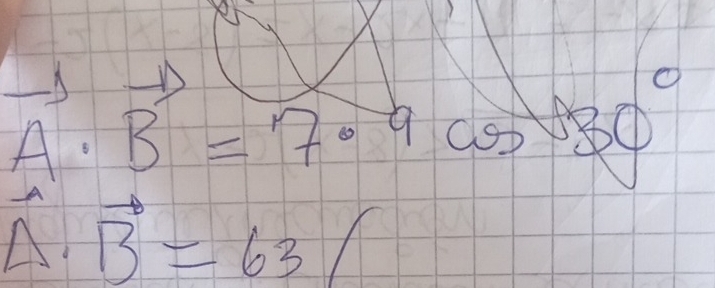 A⃗ · B⃗ = 7 · 9 cos 30°
A⃗ · B⃗ = 63 (